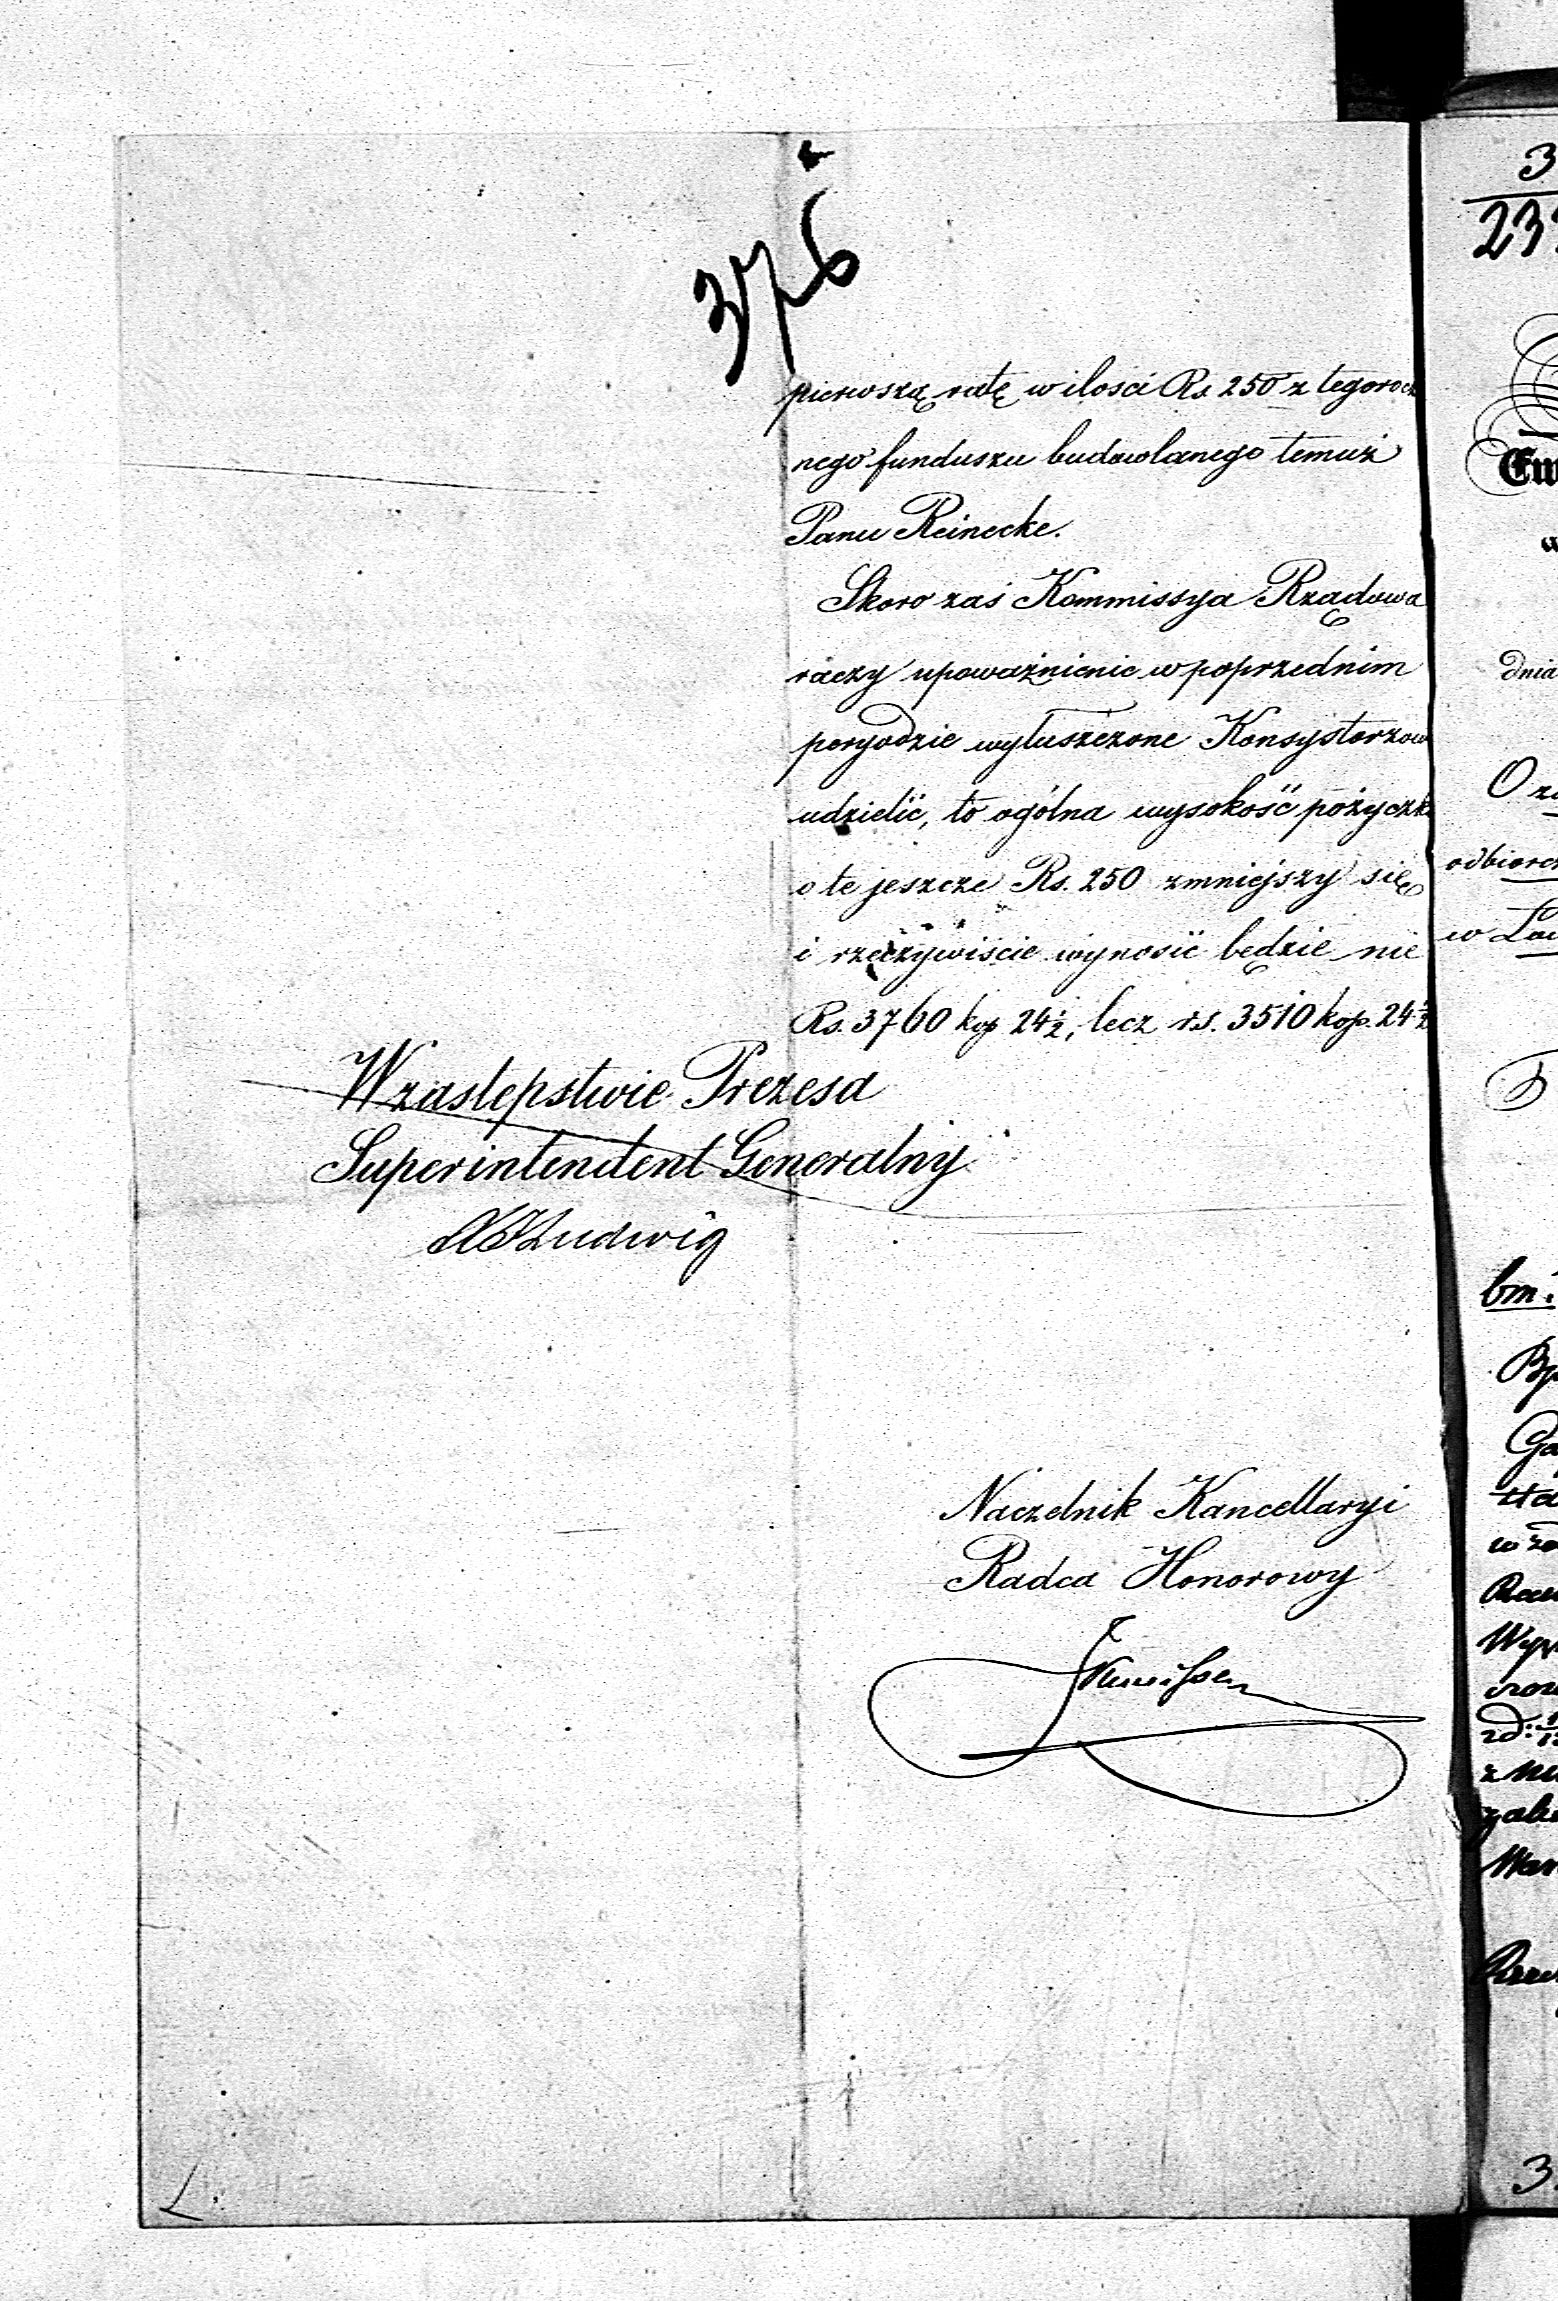 376
pierwszą ratę w ilości Rs. 250 z tegorocz
nego funduszu budowlanego temuż
Panu Reinecke.
Skoro zaś Kommissya Rządowa
raczy upoważnienie w poprzednim
peryodzie wyłuszczone Konsystorzow
udzielić, to ogólna wysokość pożyczki
o te jeszcze Rs. 250 zmniejszy się
i rzeczywiście wynosić będzie nie
Rs. 3760 kop 24½, lecz rs. 3510 kop. 24½
W zastępstwie Prezesa
Superintendent Generalny
Ludwig
Naczelnik Kancellaryi
Radca Honorowy
L.
3
23
dnia
O
odbiorc
w
bm.
Wyp
3